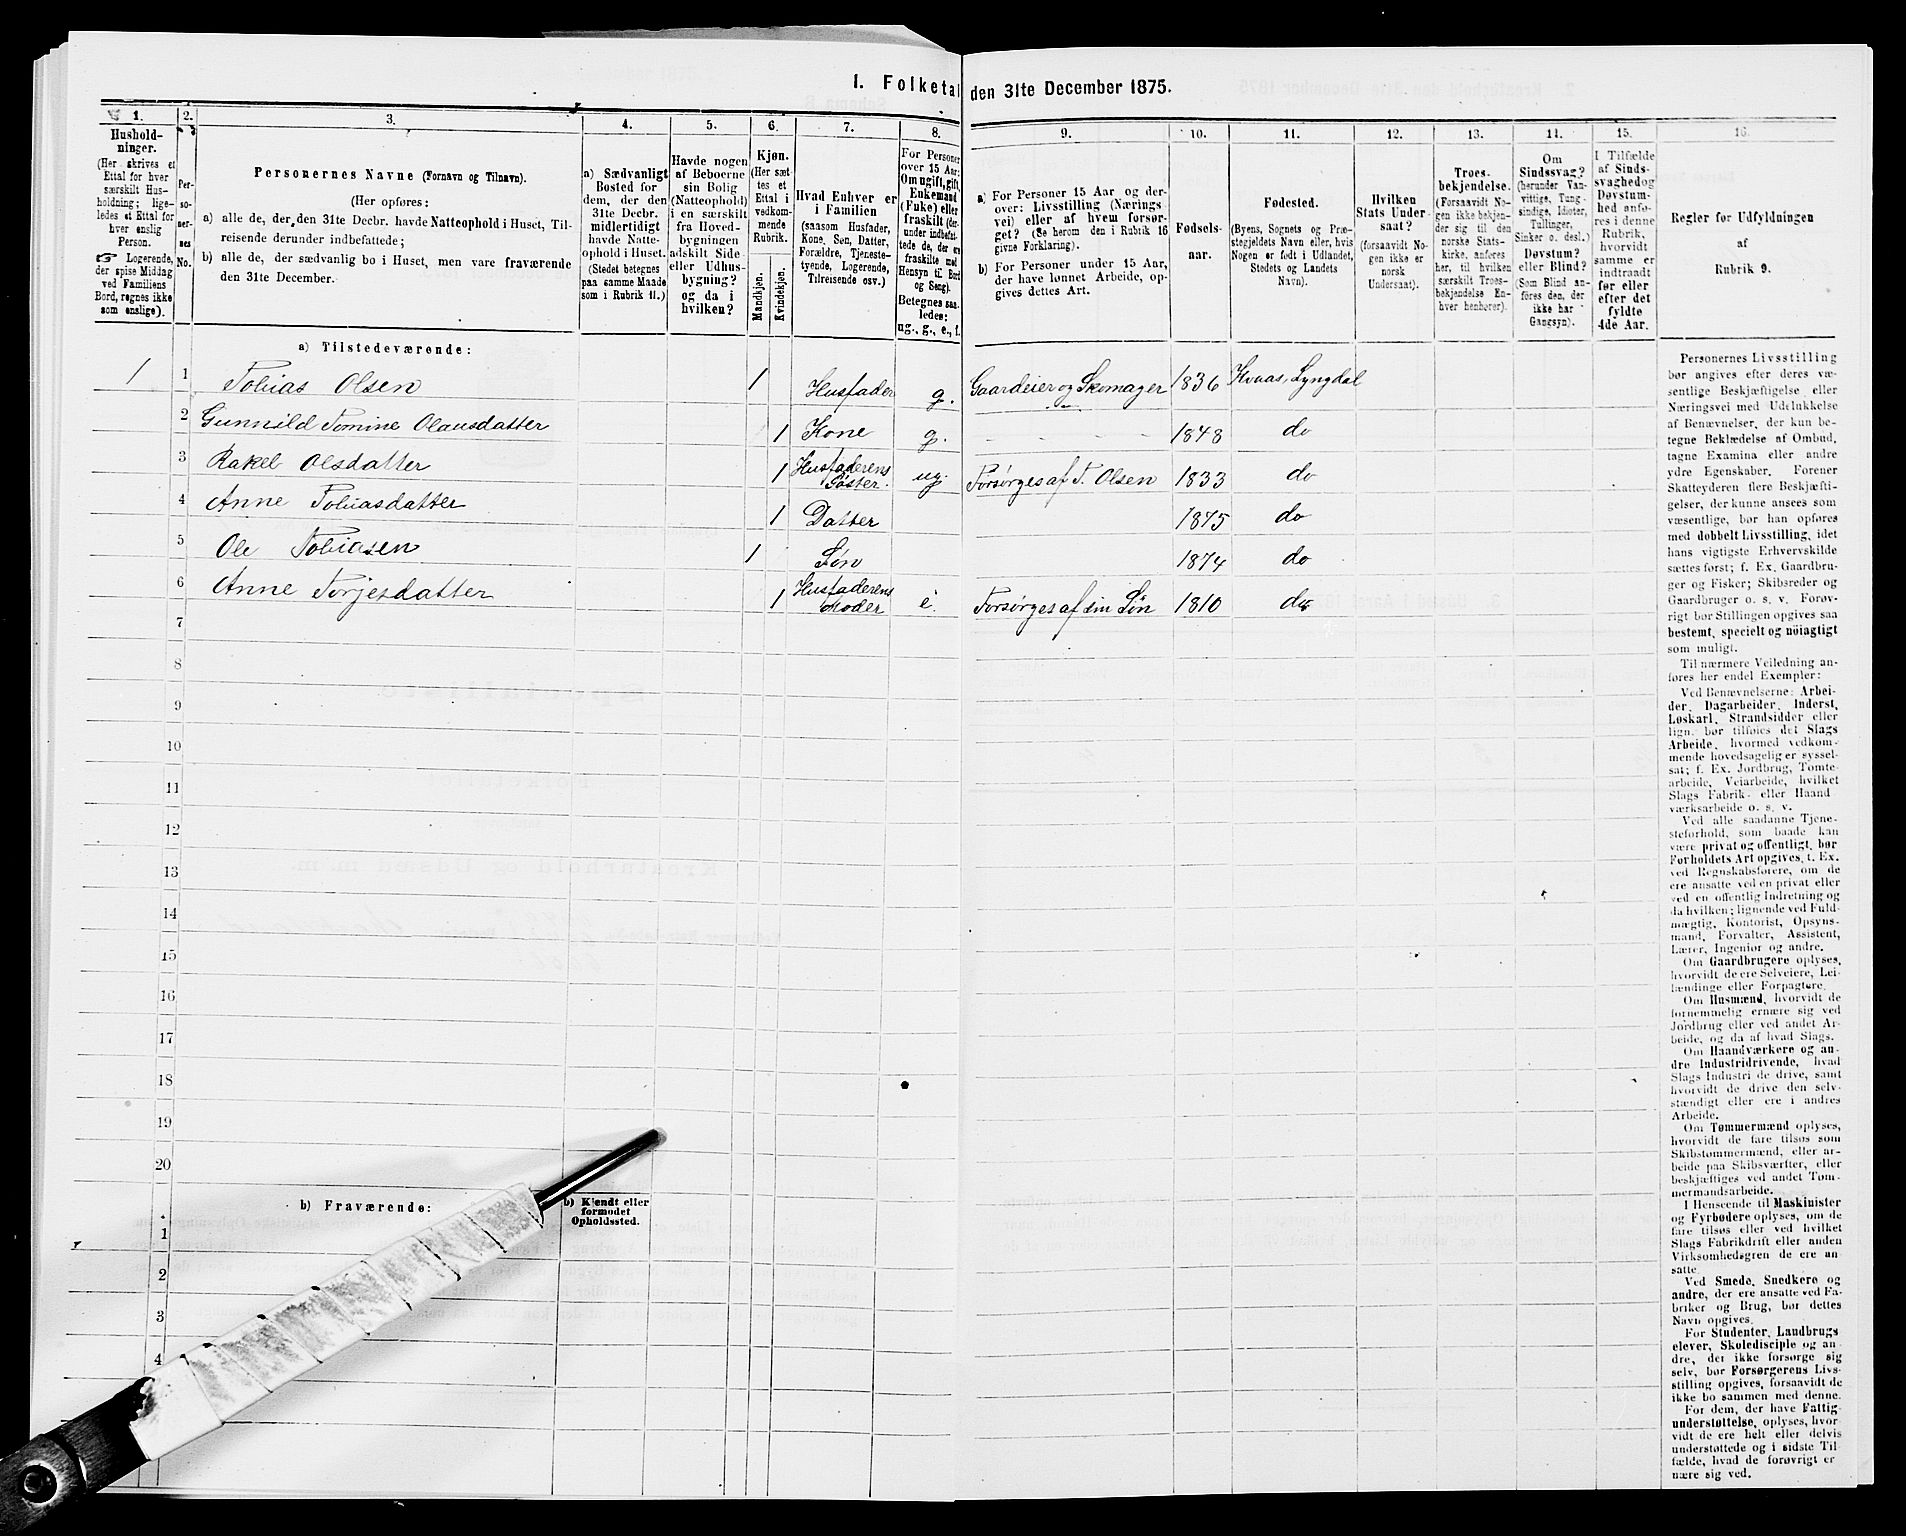 1. Folketal den 31te December 1875.
1.
2.
3.
4.
5.
6.
7.
8.
9.
10.
11.
12.
13.
14.
15.
16.
Hushold-
ninger.
(Her skrives et
Ettal for hver
særskilt Hus-
holdning; lige-
ledes et Ettal for
hver enslig
Person.
☞ Logerende,
der spise Middag
ved Familiens
Bord, regnes ikke
som enslige).
Per-
so-
ner-
nes
No.
Personernes Navne (Fornavn og Tilnavn).
(Her opføres:
a) alle de, der den 31te Decbr. havde Natteophold i Huset, Til-
reisende derunder indbefattede;
b) alle de, der sædvanlig bo i Huset, men vare fraværende
den 31te December.
a) Sædvanligt
Bosted for
dem, der den
31te Decbr.
midlertidigt
havde Natte-
ophold i Huset.
(Stedet betegnes
paa samme Maade
som i Rubrik 11.)
Havde nogen
af Beboerne
sin Bolig
(Natteophold)
i en særskilt
fra Hoved-
bygningen
adskilt Side-
eller Udhus-
bygning?
og da i
hvilken?
Kjøn.
(Her sæt-
tes et
Ettal i
vedkom-
mende
Rubrik.
Mandkjøn.
Kvindekjøn.
Hvad Enhver er
i Familien
(saasom Husfader,
Kone, Søn, Datter,
Forældre, Tjeneste-
tyende, Logerende,
Tilreisende osv.)
For Personer
over 15 Aar:
Om ugift, gift,
Enkemand
(Enke) eller
fraskilt (der-
under indbefat-
tede de, der ere
fraskilte med
Hensyn til Bord
og Seng).
Betegnes saa-
ledes:
ug., g., e., f.
a) For Personer 15 Aar og der-
over: Livsstilling (Nærings-
vei) eller af hvem forsør-
get? (Se herom den i Rubrik 16
givne Forklaring).
b) For Personer under 15 Aar,
der have lønnet Arbeide, op-
gives dettes Art.
Fødsels-
aar.
Fødested.
(Byens, Sognets og Præ-
stegjeldets Navn eller, hvis
Nogen er født i Udlandet,
Stedets og Landets
Navn).
Hvilken
Stats Under-
saat?
(forsaavidt No-
gen ikke er
norsk
Undersaat).
Troes-
bekjendelse.
(Forsaavidt No-
gen ikke bekjen-
der sig til den
norske Stats-
kirke, anføres
her, til hvilken
særskilt Troes-
bekjendelse En-
hver henhører).
Om
Sindssvag?
(herunder Van-
vittige, Tung-
sindige, Idioter,
Tullinger,
Sinker o. desl.)
Døvstum?
eller Blind?
(Som Blind an-
føres den, der
ikke har
Gangsyn).
I Tilfælde
af Sinds-
svaghed og
Døvstum-
hed anfø-
res i denne
Rubrik,
hvorvidt
samme er
indtraadt
før eller
efter det
fyldte
4de Aar.
Regler for Udfyldningen
af
Rubrik 9.
a) Tilstedeværende:
1 1 Tobias Olsen 1 Husfader g. Gaardeier og Skomager 1836 Kvaas, Lyngdal
2 Gunnild Tomine Olausdatter 1 Kone g. 1848 do
3 Rakel Olsdatter 1 Husfaderens Søster. ug. Forsørges af T. Olsen 1833 do
4 Anne Tobiasdatter 1 Datter 1875 do
5 Ole Tobiasen 1 Søn 1874 do
6 Anne Torjesdatter 1 Husfaderens Moder e. Forsørges af sin Søn 1810 do
7
8
9
10
11
12
13
14
15
16
17
18
19
20
b) Fraværende:
b) Kjendt eller
formodet
Opholdssted.
1
2
3
4
Personernes Livsstilling
bør angives efter deres væ-
sentlige Beskjæftigelse eller
Næringsvei med Udelukkelse
af Benævnelser, der kun be-
tegne Beklædelse af Ombud,
tagne Examina eller andre
ydre Egenskaber. Forener
Skatteyderen flere Beskjæfti-
gelser, der kunne ansees som
væsentlige, bør han opføres
med dobbelt Livsstilling, idet
hans vigtigste Erhvervskilde
sættes først; f. Ex. Gaardbru-
ger og Fisker; Skibsreder og
Gaardbruger o. s. v. Forøv-
rigt bør Stillingen opgives saa
bestemt, specielt og nöiagtigt
som muligt.
Til nærmere Veiledning an-
føres her endel Exempler:
Ved Benævnelserne: Arbei-
der, Dagarbeider, Inderst,
Løskarl, Strandsidder eller
lign. bør tilføies det Slags
Arbeide, hvormed vedkom-
mende hovedsagelig er syssel-
sat; f. Ex. Jordbrug, Tomte-
arbeide, Veiarbeide, hvilket
Slags Fabrik- eller Haand-
værksarbeide o. s. v.
Ved alle saadanne Tjene-
steforhold, som baade kan
være privat og offentligt, bør
Forholdets Art opgives, t. Ex.
ved Regnskabsførere, om de
ere ansatte ved en privat eller
ved en offentlig Indretning og
da hvilken; lignende ved Fuld-
mægtig, Kontorist, Opsyns-
mand, Forvalter, Assistent,
Lærer, Ingeniør og andre.
Om Gaardbrugere oplyses,
hvorvidt de ere Selveiere, Lei-
lændinge eller Forpagtere.
Om Husmænd, hvorvidt de
fornemmelig ernære sig ved
Jordbrug eller ved andet Ar-
beide, og da af hvad Slags.
Om Haandværkere og an-
dre Industridrivende, hvad
Slags Industri de drive, samt
hvorvidt de drive den selv-
stændigt eller ere i andres
Arbeide.
Om Tømmermænd oplyses,
hvorvidt de fare tilsøs som
Skibstømmermænd, eller ar-
beide paa Skibsværfter, eller
beskjæftiges ved andet Tøm-
mermandsarbeide.
I Henseende til Maskinister
og Fyrbødere oplyses, om de
fare tilsøs eller ved hvilket
Slags Fabrikdrift eller anden
Virksomhedsgren de ere an-
satte.
Ved Smede, Snedkere og
andre, der ere ansatte ved Fa-
briker og Brug, bør dettes
Navn opgives.
For Studenter, Landbrugs-
elever, Skoledisciple og an-
dre, der ikke forsørge sig
selv, bør Forsørgerens Livs-
stilling opgives, forsaavidt de
ikke bo sammen med denne.
For dem, der have Fattig-
understøttelse, oplyses, hvor-
vidt de ere helt eller delvis
understøttede og i sidste Til-
fælde, hvad de forøvrigt er-
nære sig ved.